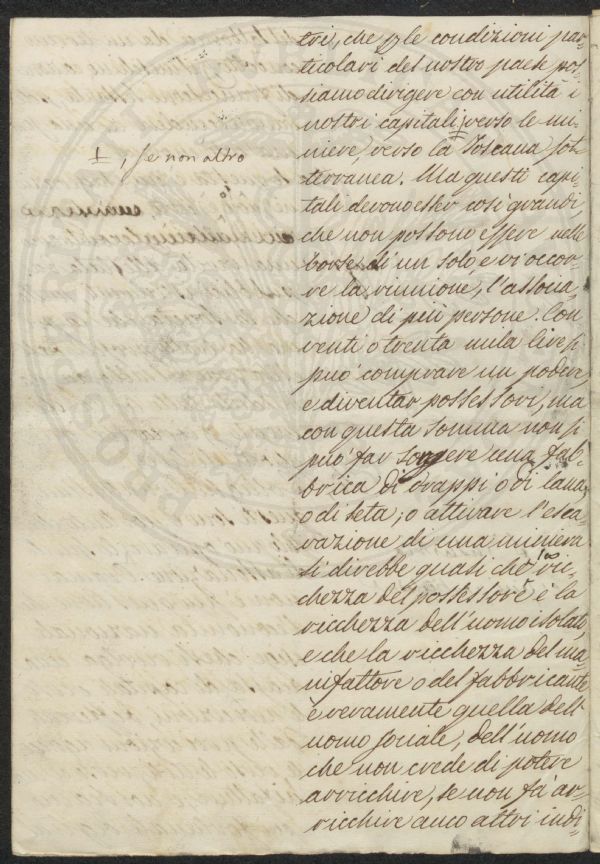 tri, che p le condizioni par-
ticolari del nostro paese pos-
siamo dirigere con utilità i
nostri capitali verso le mi-
⊥, se non altro
niere, verso la Toscana sot-
terranea. Ma questi capi-
tali devono esser così grandi,
che non possono essere nelle
borse di un solo, e vi occor-
re la riunione, l'associa-
zione di più persone. Con
venti o trenta mila lire si
può comprare un podere,
e diventar possessori, ma
con questa somma non si
può far sorgere una fab-
brica di drappi o di lana,
o di seta; o attivare l'esca-
vazione di una miniera
si direbbe quasi che la ric-
chezza del possessore è la
ricchezza dell'uomo isolato,
e che la ricchezza del ma-
nifattore o del fabbricante
è veramente quella dell'
uomo sociale, dell'uomo
che non crede di potere
arricchire, se non fa ar-
ricchire anco altri indi-